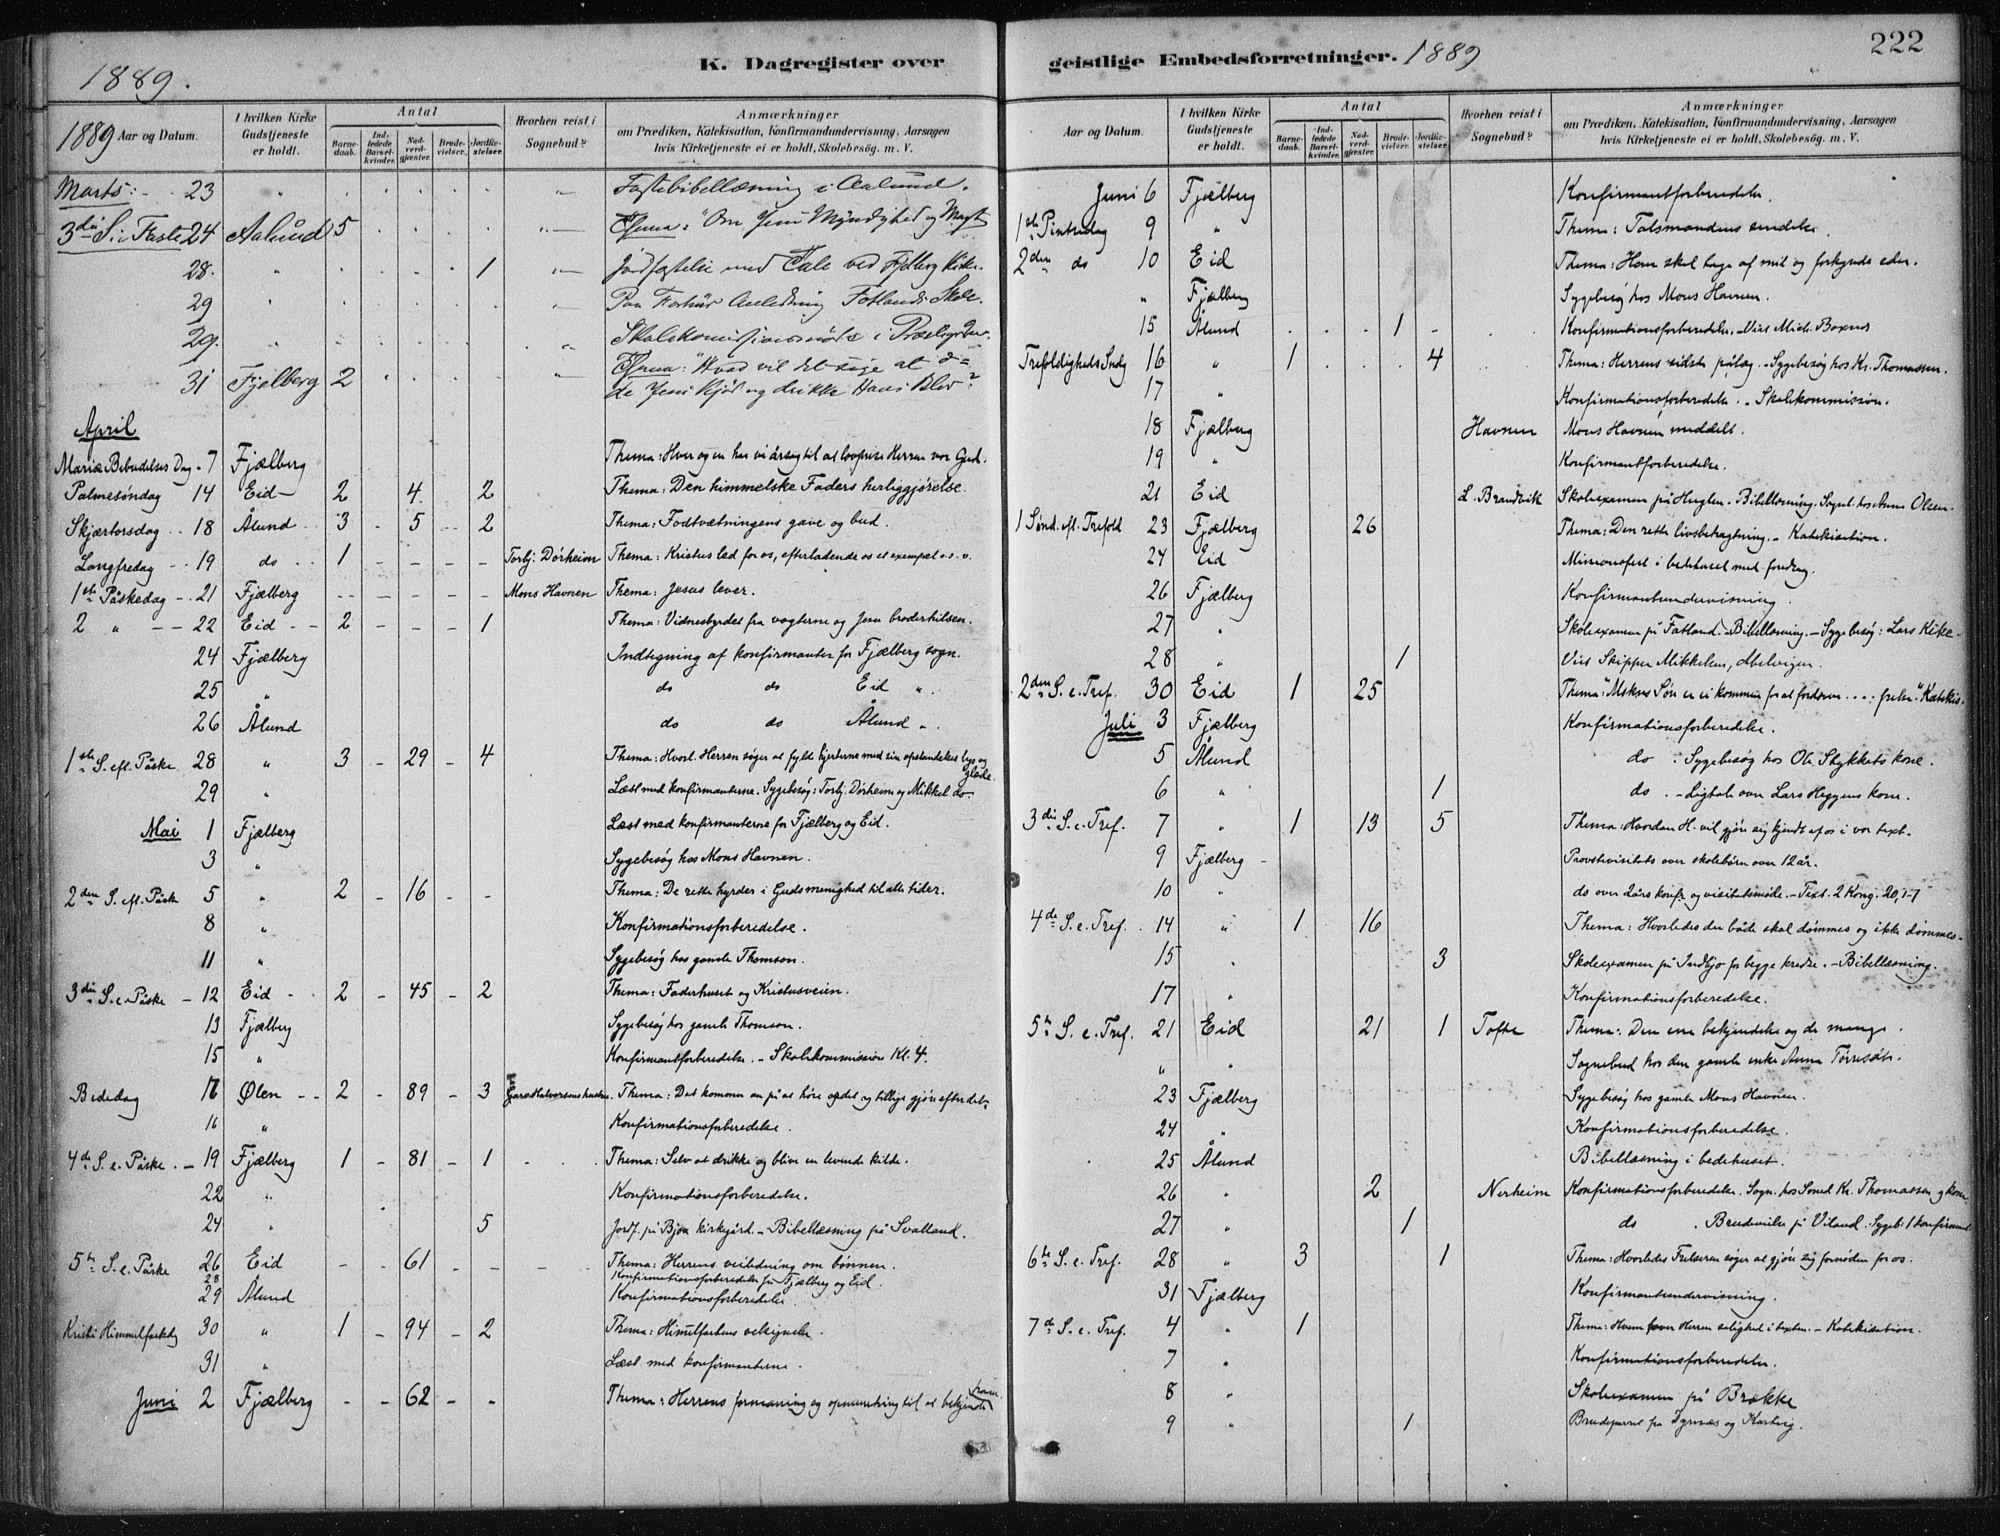 1889.
K. Dagregister over
1889 Aar og Datum.
I hvilken Kirke Gudstjeneste er holdt.
Antal
Barnedaab.
Indledede Barselkvinder.
Nadverdgjester.
Brudevielser.
Jordfæstelser.
Hvorhen reist i Sognebud?
Anmærkninger
om Prædiken, Katekisation, Konfirmandundervisning, Aarsagen
hvis Kirketjeneste ei er holdt, Skolebesøg. m. V.
Marts: 23 " Fastebibellæsning i Aalund.
3die S. i Faste 24 Aalund 5 Thema: "Om Jesu Myndighed og Magt
28. " 1 Jordfæstelse med Tale ved Fjelberg Kirke.
29 Paa Anledning Fatlands Skole.
29. Skolekommissionsmøde i
31 Fjelberg 2 Thema: "Hvad vil det sige at æ=
de Jesu Kjød og drikke Hans Blod?
April
Mariæ Bebudelses Dag 7 Fjælberg Thema: Hver og en har vi årsag til at lovprise Herren vor Gud.
Palmesøndag 14 Eid 2 4 2 Thema: Den himmelske Faders herliggjørelse.
Skjærtorsdag 18 Ålund 3 5 2 Thema: Fodtvætningens gave og bud.
Langfredag 19 do 1 Torbj. Dørheim Thema: Kristus led for os, efterladende os et exempel o. s. v.
1ste Påskedag 21 Fjælberg Mons Havnen Thema: Jesus lever.
2 " 22 Eid 2 1 Thema: Vidnesbyrdet fra vogterne og Jesu broderhilsen.
24 Fjælberg Indtegning af konfirmanter for Fjælberg sogn.
25 " do do Eid "
26 Ålund do do Ålund "
1ste S. efl. Påske 28 " 3 29 4 Thema: Hvorl. Herren søger at fylde hjerterne med sin opstandelses lys og glæde.
29 " Læst med konfirmanterne. Sygebesøg: Torbj. Dørheim og Mikkel do.
Mai 1 Fjælberg Læst med konfirmanterne for Fjælberg og Eid.
3 " Sygebesøg hos Mons Havnen.
2den S. efl. Påske 5 " 2 16 Thema: De rette hyrder i Guds menighed til alle tider.
8 " Konfirmationsforberedelse.
11 " Sygebesøg hos gamle Thomson.
3die S. e. Påske 12 Eid 2 45 2 Thema: Faderhuset og Kristusveien.
13 Fjælberg Sygebesøg hos gamle Thomson.
15 " Konfirmantforberedelse. - Skolekommission Kl. 4.
Bededag 17 Ølen 2 89 3 Thema: Det kommer an på at høre ordet og tillige gjøre efter det.
16 " Konfirmationsforberedelse.
4de S. e. Påske 19 Fjælberg 1 81 1 Thema: Selv at drikke og blive en levende kilde.
22 " Konfirmationsforberedelse.
24 " 5 Jordf. på Bjoa kirkgård. - Bibellæsning på Svalland.
5te S. e. Påske 26 Eid 61 Thema: Herrens veiledning om bønnen.
28 Konfirmationsforberedelse for Fjælberg og Eid.
29 Ålund Konfirmationsforberedelse.
Kristi Himmelfartsdg 30 " 1 94 2 Thema: Himelfartens velsignelse.
31 " Læst med konfirmanterne.
Juni 2 Fjælberg 62 Thema: Herrens formaning og opmuntring til at bekjende ham
222
geistlige Embedsforretninger. 1889
Aar og Datum.
I hvilken Kirke Gudstjeneste er holdt.
Antal
Barnedaab.
Indledede Barselkvinder.
Nadverdgjester.
Brudevielser.
Jordfæstelser.
Hvorhen reist i Sognebud?
Anmærkninger
om Prædiken, Katekisation, Konfirmandundervisning, Aarsagen
hvis Kirketjeneste ei er holdt, Skolebesøg. m. V.
Juni 6 Fjælberg Konfirmantforberedelse.
1ste Pintsedag 9 " Thema: Talsmandens sendelse.
2den do 10 Eid Thema: Han skal tage af mit og forkynde eder.
" Fjælberg Sygebesøg hos Mons Havnen.
15 Ålund 1 Konfirmationsforberedelse. Vies Mich.
Trefoldigheds Sndg 16 " 1 4 Thema: Herrens sidste pålæg. - Sygebesøg hos Kr. Thomassen.
17 " Konfirmationsforberedelse. - Skolekommission.
18 Fjælberg Havnen Mons Havnen meddelt.
19 " Konfirmantforberedelse.
21 Eid L. Brandvik Skoleexamen på Huglen. Bibellæsning. Sogneb. hos Anne Olsen.
1 Sønd. efl. Trefold 23 Fjælberg 26 Thema: Den rette livsbetragtning. - Katekisation.
24 Eid Missionsfest i bedehuset med foredrag.
26 Fjælberg Konfirmantundervisning.
27 " Skoleexamen på Fatland. - Bibellæsning. - Sygebesøg: Lars Eike
28 " 1 Vies Skipper Mikkelsen,
2den S. e. Tref. 30 Eid 1 25 Thema: "Mskns Søn er ei kommen for at fordærve .... frelse." Katekis-
Juli 3 Fjælberg Konfirmationsforberedelse.
5 Ålund do : Sygebesøg hos Ole Stykkets kone.
6 " 1 do. - Ligtale over Lars Heggens kone.
3die S. e. Tref. 7 " 1 13 5 Thema: Hvordan H. vil gjøre sig kjendt af os i vor text.
9 Fjælberg Provstevisitats over skolebørn over 12 år.
10 " do over 2 års konf. og visitatsmøde. - Text. 2 Kong. 20, 1-7
4de S. e. Tref. 14 " 1 16 Thema: Hvorledes der både skal dømmes og ikke dømmes.
15 " 3 Skoleexamen på Indbjo for begge kredse. - Bibellæsning.
17 " Konfirmationsforberedelse.
5te S. e. Tref. 21 Eid 21 1 Tofte Thema: Den ene bekjendelse og de mange.
" " Sognebud hos den gamle enke Anna
23 Fjælberg Sygebesøg hos gamle Mons Havnen.
24 " Konfirmationsforberedelse.
25 Ålund Bibellæsning i bedehuset.
26 " 2 Nerheim Konfirmationsforberedelse. Sogn. hos Kr. Thomassen og kone
27 " 1 do. Brudevielse på Viland. Sygeb. 1 konfirmant
6te S. e. Tref. 28 " 3 1 Thema: Hvorledes Frelseren søger at gjøre sig fornøden for os.
31 Fjælberg Konfirmantundervisning.
7de S. e. Tref. 4 " 1 Thema: Hvem lover Herren salighed i texten. - Katekisation.
7 " Konfirmationsforberedelse.
8 " Skoleexamen på Brække
9 " 1 Brudeparret fra